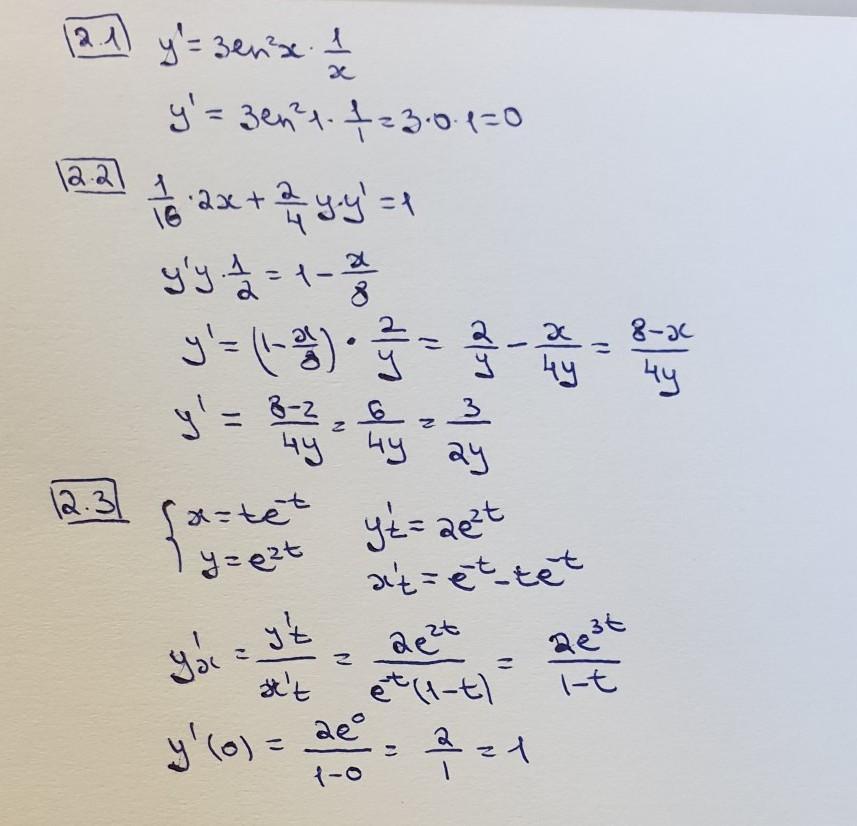 2.1 y' = 3ln²x · 1/x
y' = 3ln²1 · 1/1 = 3·0·1=0
2.2 1/16 · 2x + 2/4 y·y' = 1
y'y · 1/2 = 1 - x/8
y' = (1 - x/8) · 2/y = 2/y - x/4y = 8-x/4y
y' = 8-2/4y = 6/4y = 3/2y
2.3 { x = te^-t y't = 2e^2t
y = e^2t x't = e^-t - te^-t
y'x = y't/x't = 2e^2t/e^-t(1-t) = 2e^3t/1-t
y'(0) = 2e^0/1-0 = 2/1 = 1